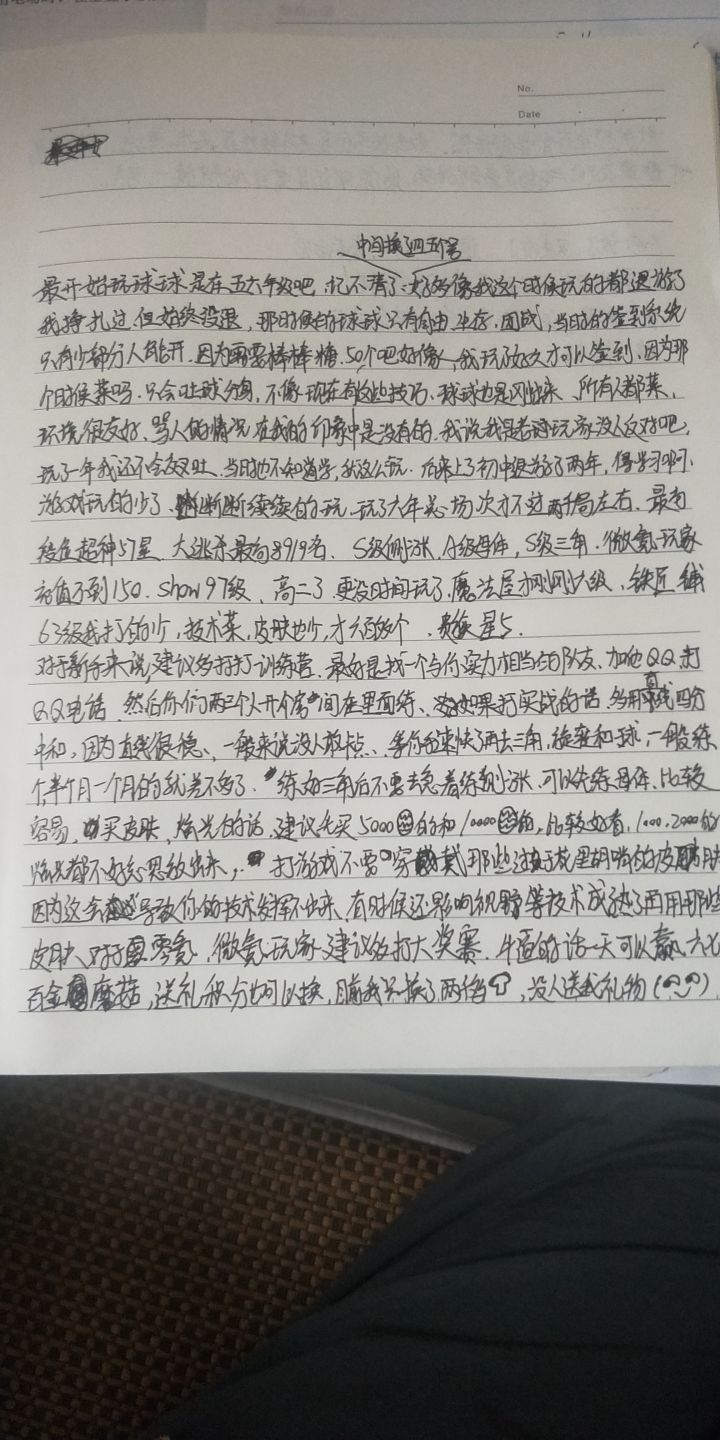 No.
Date
中间换了四五个号
最开始玩球球是在五六年级吧,忆不清了.好多像我这个时候玩的都退游了
我挣扎过,但始终没退,那时候的球球只有自由 生存.团战,当时的签到系统
只有少部分人能开.因为需要棒棒糖.50个吧好像,我玩了好久才可以签到.因为那
个时候菜吗.只会吐球分身,不像现在有这些技巧.球球也是刚出来、所有人都菜、
环境很友好、骂人的情况在我的印象中是没有的.我说我是老玩家没人反对吧,
玩了一年我还不会交叉吐.当时也不知道学,就这么玩.后来上了初中退游了两年,得学习啊.
游戏玩的少了.断断续续的玩.玩了六年总场次才不过两千局左右.最高
段位超神57星 大逃杀最高8919名、S级侧涨,A级母体,S级三角.微氪玩家
充值不到150.show97级、高二了更没时间玩了,魔法屋才刚刚六级、铁匠铺
63级我打的少,技术菜,皮肤也少,才60多个.
对于新手来说,建议多打打训练营、最好是找一个与你实力相当的队友、加他QQ打
QQ电话、然后你们两三个人开个房间在里面练、如果打实战的话,多用直线四分
中和,因为直线很稳、一般来说没人敢卡点、等你手速快了再去三角,旋转和球,一般练
个半个月一个月的就差不多了.练好三角后不要去急着练侧涨.可以先练母体.比较
容易,买皮肤,炫光的话,建议先买5000的和10000的,比较好看,1000.2000的
炫光都不好意思放出来,打游戏不要穿戴那些过于花里胡哨的皮肤
因为这会导致你的技术发挥不出来、有时候还影响视野等技术成熟了再用那些
皮肤、对于零氪,微氪玩家建议多打大奖赛.牛逼的话一天可以赢六七
百金蘑菇,送礼积分也可以换,目前我只换了两个,没人送我礼物